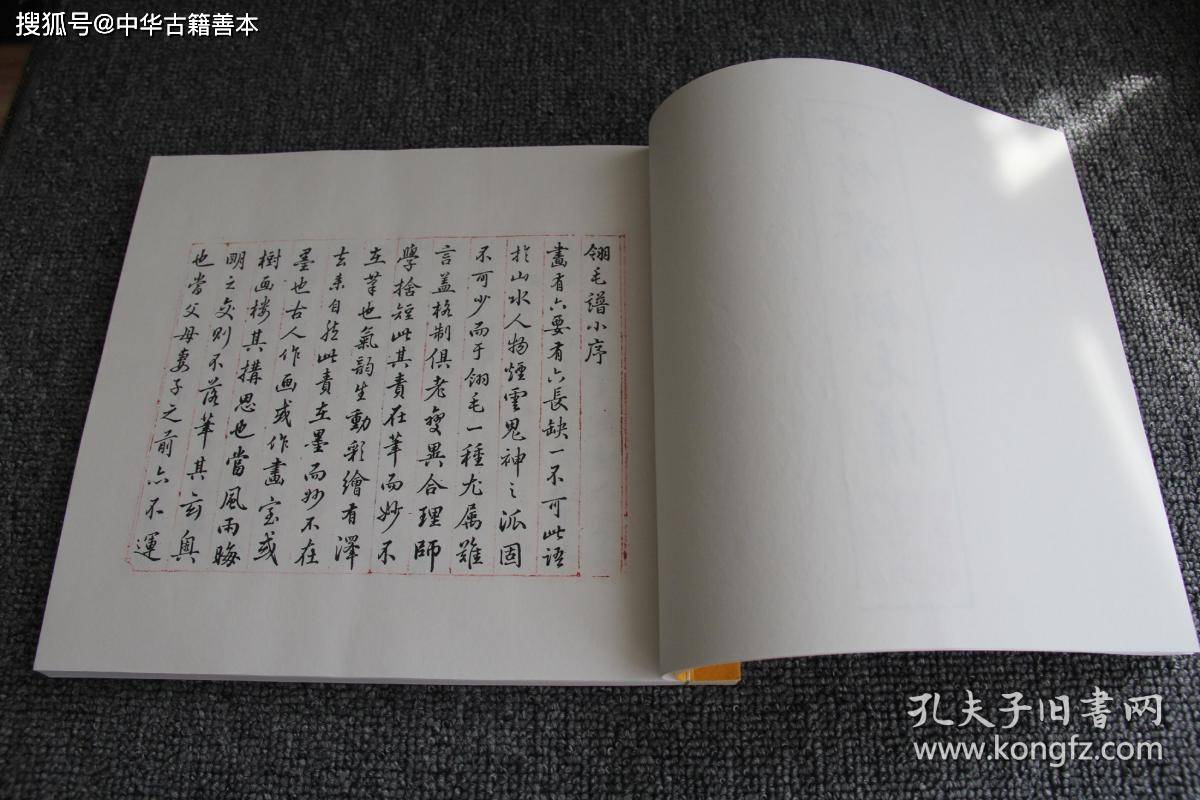 搜狐号@中华古籍善本
翎毛譜小序
畫有六要有六長缺一不可此語
於山水人物煙雲鬼神之派固
不可少而于翎毛一種尤属難
言盖格制俱老變異合理師
學捨短此其責在筆而妙不
在筆也氣韵生動彩繪有澤
去来自然此責在墨而妙不在
墨也古人作画或作畫室或
樹画楼其搆思也當風雨晦
明之交則不落筆其玄奥
也當父母妻子之前亦不運
孔夫子旧書网
www.kongfz.com